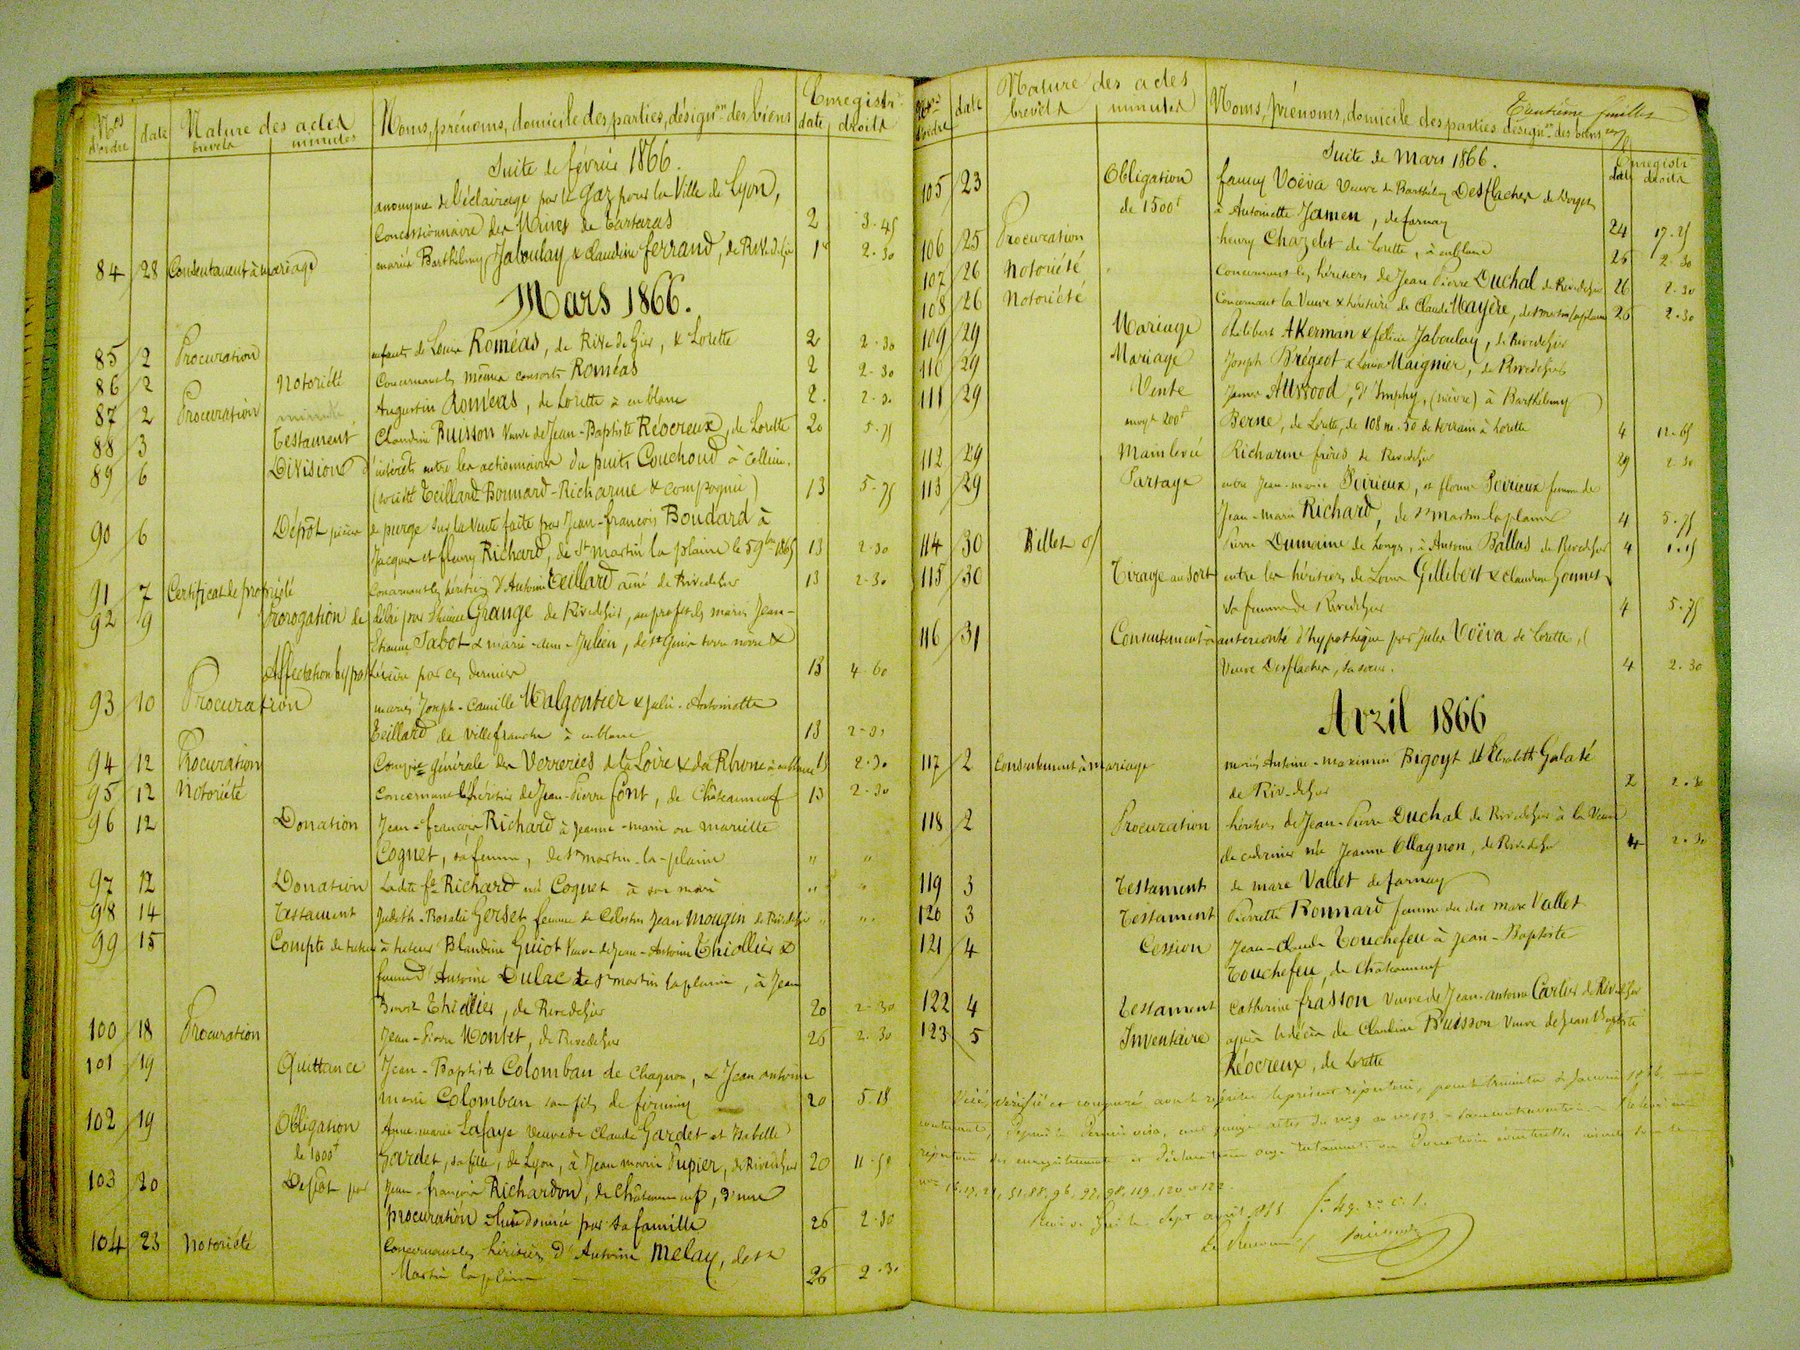 Nos d'ordre date Nature des actes Noms, prénoms, domicile des parties, désignon des biens Enregistr.
brevets minutes date droits
Suite de février 1866.
anonyme de l'éclairage par le Gaz pour la Ville de Lyon,
Concessionnaire des Mines de Tartaras 2 3.45
84 28 Consentement à mariage mariés Barthélemy Jaboulay & Claudine ferrand, de Rive de Gier 2.30
Mars 1866.
85 2 Procuration enfants de Roméas, de Rive de Gier, & Lorette 2 2.30
86 2 Notoriété Concernant les mêmes consorts Roméas 2 2.30
87 2 Procuration Augustin Roméas, de Lorette à en blanc 2. 2.30
88 3 Testament Claudine Buisson Veuve de Jean-Baptiste Réocreux, de Lorette 20 5.75
89 6 Division d'intérêts entre les actionnaires du puits Couchoud à Collieu.
(société Teillard Bonnard-Richarme & compagnie) 13 5.75
90 6 Dépôt pièces de purge sur la Vente faite par Jean-françois Boudard à
Jacques et fleury Richard, de St martin la plaine le 5 9bre 1865 13 2.30
91 7 Certificat de propriété Concernant les héritiers d'Antoine Teillard ainé de Rivedegier 13 2.30
92 9 Prorogation de délai par Etienne Grange de Rivedegier, au profit des mariés Jean-
Etienne Jabot & marie - Julien, de St Genis terre noire &
Affectation hypothécaire par ces derniers 13 4.60
93 10 Procuration mariés Joseph-Camille Malgontier & Julie-Antoinette
Teillard de Villefranche à en blanc 13 2.30
94 12 Procuration Compie générale des Verreries de la Loire & du Rhône à en blanc 13 2.30
95 12 Notoriété Concernant l'héritier de Jean-Pierre font, de Châteauneuf 13 2.30
96 12 Donation Jean-françois Richard à Jeanne-marie ou mariette
Cognet, sa femme, de St martin-la-plaine " "
97 12 Donation Ladite fe Richard née Cognet à son mari " "
98 14 Testament Judith-Rosalie Gerset femme de Célestin Jean Mougin de Rivedegier " "
99 15 Compte de tutelle à tuteur Blandine Guiot Veuve de Jean-Antoine Thiollier &
femme d'Antoine Dulac de St martin la plaine, à Jean
Benoit Thiollier, de Rivedegier 20 2.30
100 18 Procuration Jean-Pierre Montet, de Rivedegier 26 2.30
101 19 Quittance Jean-Baptiste Colomban de Chagnon, & Jean antoine
marie Colomban son fils de firminy 20 5.18
102 19 Obligation Anne-marie Lafaye Veuve de Claude Gardet et Isabelle
de 1000f Gardet, sa fille, de Lyon, à Jean marie Pupier, de Rivedegier 20 11.50
103 20 Dépôt par Jean-françois Richardon, de Châteauneuf, d'une
procuration à lui donnée par sa famille 26 2.30
104 23 Notoriété Concernant les héritiers d'Antoine Melay, de St
Martin la plaine 26 2.30
Nos d'ordre date Nature des actes Noms, prénoms, domicile des parties désignon des biens
brevets minutes Trentième feuillet
Suite de Mars 1866. Enregistr. date droits
105 23 Obligation fanny Voëva Veuve de Barthélemy Desflaches de
de 1500f à Antoinette Jamen, de farnay 24 17.25
106 25 Procuration henry Chazelet de Lorette, à en blanc 26 2.30
107 26 Notoriété Concernant les héritiers de Jean Pierre Duchal de Rivedegier 26 2.30
108 26 Notoriété Concernant la Veuve & héritiers de Claude Mayère, de St martin laplaine 26 2.30
109 29 Mariage Philibert Akerman & félicie Jaboulay, de Rivedegier
110 29 Mariage Joseph Brégeot & Louise Maignier, de Rivedegier
111 29 Vente James Attwood, d'Imphy, (nièvre) à Barthélemy
moyt 200f Berne, de Lorette, de 108 m. 50 de terrain à Lorette 4 12.65
112 29 Mainlevée Richarme frères de Rivedegier 29 2.30
113 29 Partage entre Jean-marie Poirieux, et Poirieux femme de
Jean-Marie Richard, de St martin la plaine 4 5.75
114 30 Billet Pierre Dumaine de Longes, à Antoine Ballas de Rivedegier 4 1.15
115 30 Tirage au sort entre les héritiers de Gillibert & claudine Gonnet
sa femme de Rivedegier 4 5.75
116 31 Consentement à antériorité d'hypothèque par Jules Voëva de Lorette, à
Veuve Desflaches, sa sœur. 4 2.30
Avril 1866
117 2 Consentement à mariage mariés Antoine-maximin Bigoyt et Elisabeth Galaté
de Rivedegier 2 2.30
118 2 Procuration héritiers de Jean-Pierre Duchal de Rivedegier à la Veuve
de ce dernier née Jeanne Ollagnon, de Rivedegier 4 2.30
119 3 Testament de marc Vallet de farnay
120 3 Testament Pierrette Bonnard femme du dit marc Vallet
121 4 Cession Jean-Claude Touchefeu à Jean-Baptiste
Touchefeu, de Châteauneuf
122 4 Testament Catherine frasson Veuve de Jean-antoine Carlier de Rivedegier
123 5 Inventaire après le décès de Claudine Buisson Veuve de Jean Baptiste
Réocreux, de Lorette
Visé, vérifié et comparé avec le registre le présent répertoire, pour le trimestre de Janvier 1866,
contenant, depuis le dernier visa,
répertoire des enregistrements
nos 96, 97, 98, 119, 120 et 122
sept avril 1866
Le Receveur